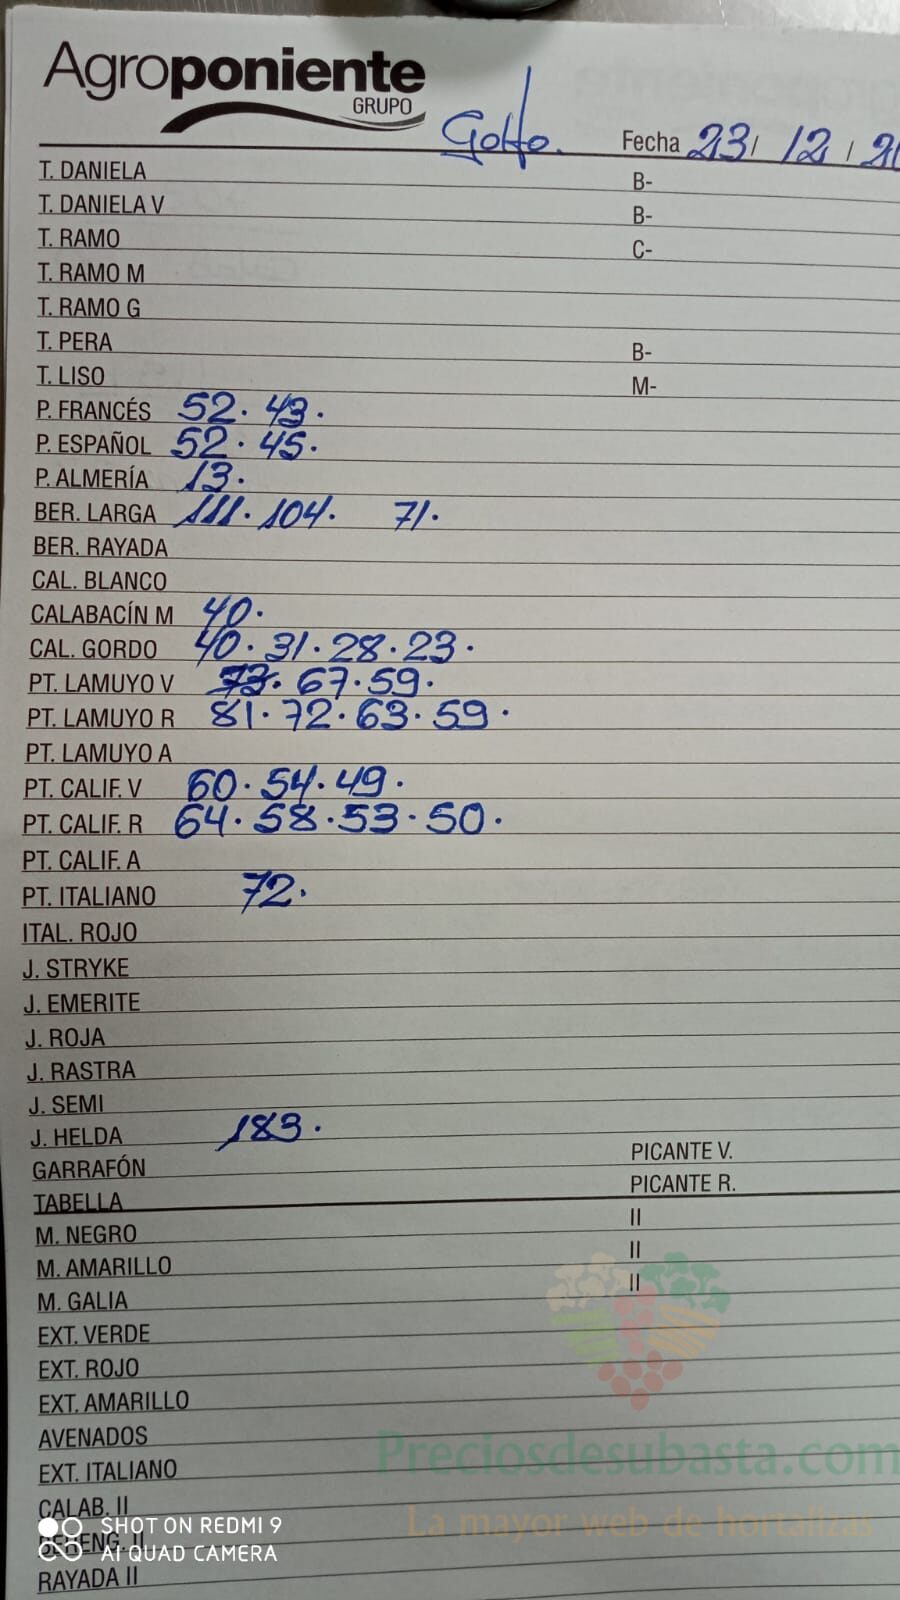 Agroponiente
GRUPO
Golfo. Fecha 23 / 12 / 20
T. DANIELA B-
T. DANELA V B-
T. RAMO C-
T. RAMO M
T. RAMO G
T. PERA B-
T. LISO M-
P. FRANCÉS 52. 43.
P. ESPAÑOL 52. 45.
P. ALMERÍA 13.
BER. LARGA 111. 104. 71.
BER. RAYADA
CAL. BLANCO
CALABACÍN M 40.
CAL. GORDO 40. 31. 28. 23.
PT. LAMUYO V 73. 67. 59.
PT. LAMUYO R 81. 72. 63. 59.
PT. LAMUYO A
PT. CALIF. V 60. 54. 49.
PT. CALIF. R 64. 58. 53. 50.
PT. CALIF. A
PT. ITALIANO 72.
ITAL. ROJO
J. STRYKE
J. EMERITE
J. ROJA
J. RASTRA
J. SEMI
J. HELDA 183.
GARRAFÓN PICANTE V.
TABELLA PICANTE R.
M. NEGRO II
M. AMARILLO II
M. GALIA II
EXT. VERDE
EXT. ROJO
EXT. AMARILLO
AVENADOS
EXT. ITALIANO
Preciosdesubasta.com
La mayor web de hortalizas
CALAB. II
SHOT ON REDMI 9
BERENG. II
AI QUAD CAMERA
RAYADA II